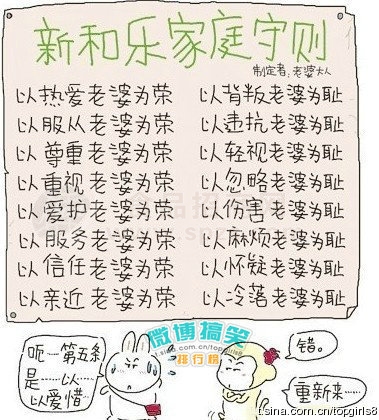 新和乐家庭守则
制定者:老婆大人
以热爱老婆为荣 以背叛老婆为耻
以服从老婆为荣 以违抗老婆为耻
以尊重老婆为荣 以轻视老婆为耻
以重视老婆为荣 以忽略老婆为耻
以爱护老婆为荣 以伤害老婆为耻
以服务老婆为荣 以麻烦老婆为耻
以信任老婆为荣 以怀疑老婆为耻
以亲近老婆为荣 以冷落老婆为耻
微博搞笑
排行榜
呃一第五条
是……以……
以爱惜
错。
重新来……
t.sina.com.cn/topgirls8